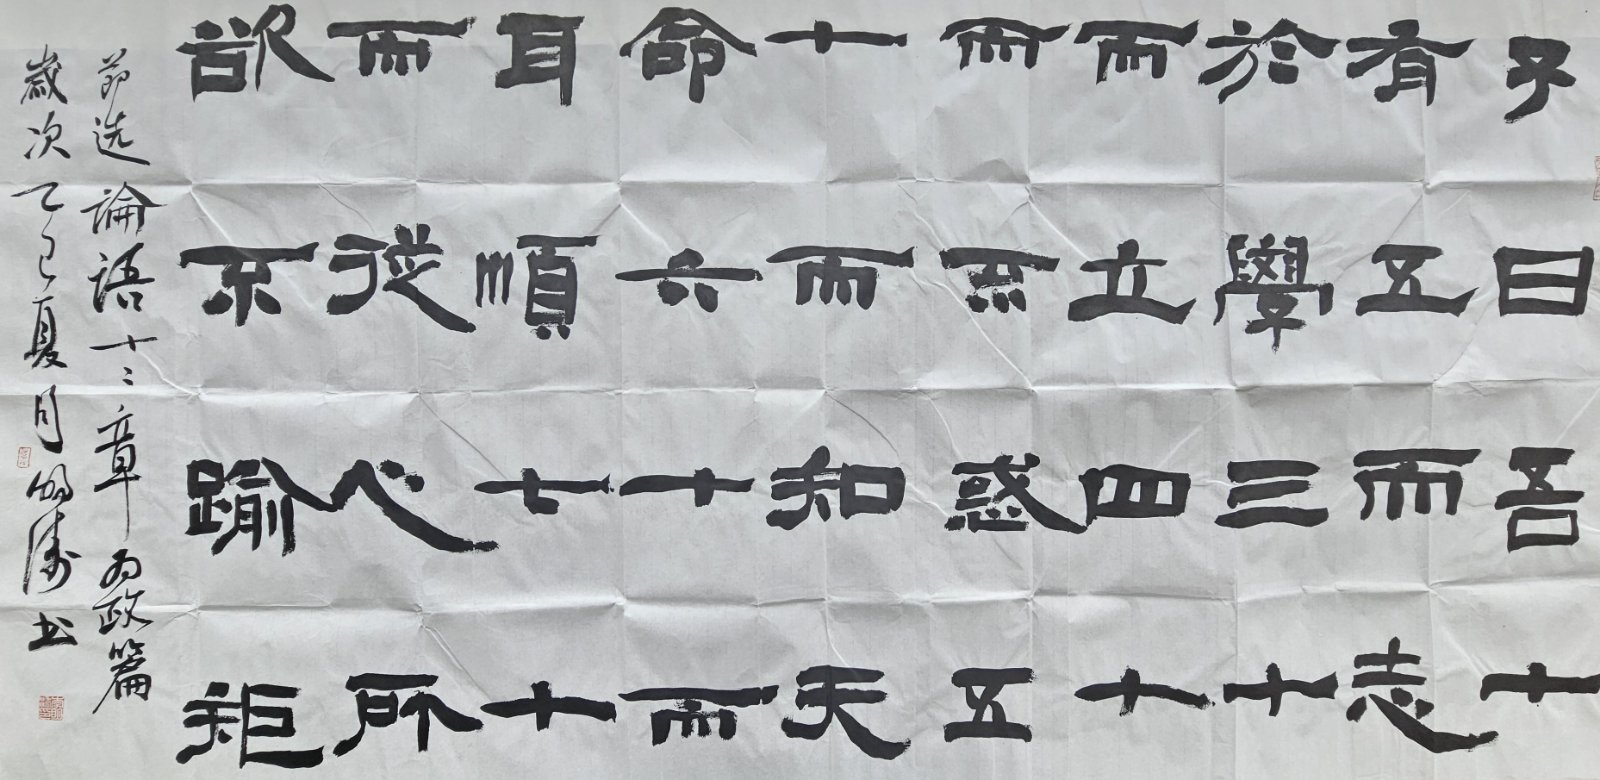 子曰吾十
有五而志
於學三十
而立四十
而不惑五
十而知天
命六十而
耳順七十
而從心所
欲不踰矩
節选論語十二章为政篇
歲次乙巳夏月明濤书